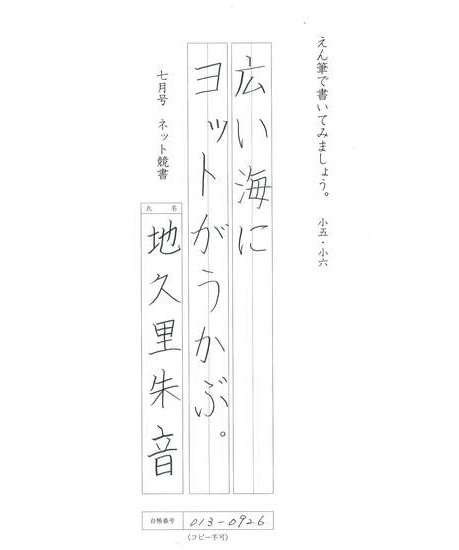 えん筆で書いてみましょう。 小五・小六
広い海に
ヨットがうかぶ。
七月号 ネット競書
氏名
地久里朱音
台帳番号 013-0926
(コピー不可)